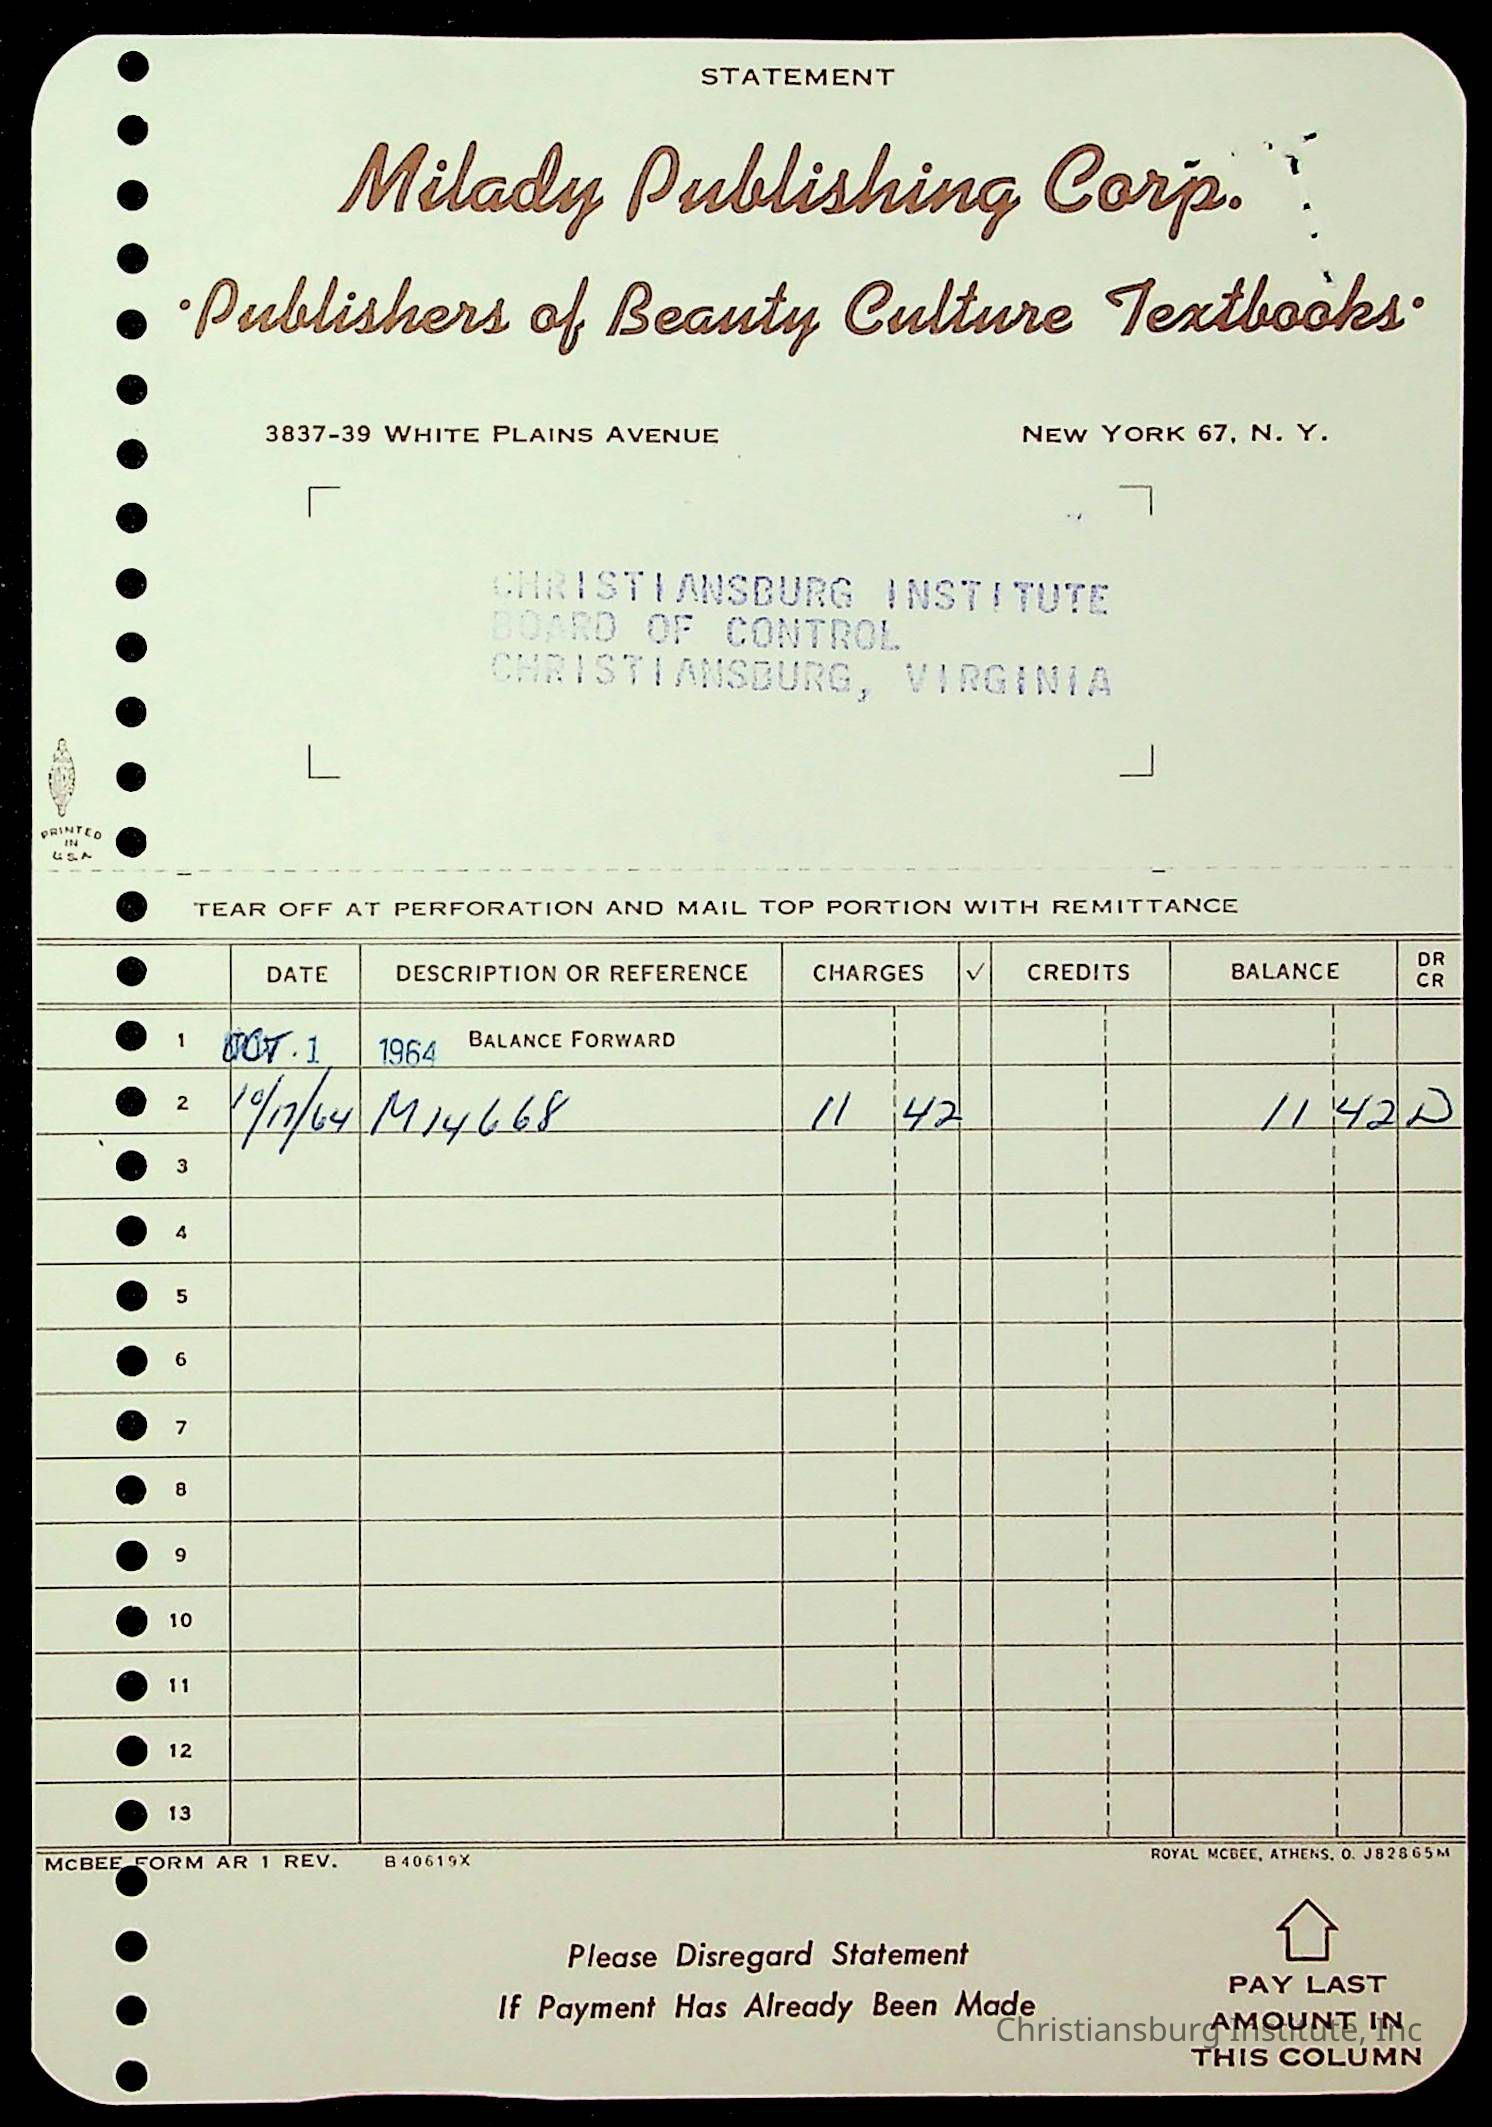 STATEMENT
Milady Publishing Corp.
·Publishers of Beauty Culture Textbooks·
3837-39 WHITE PLAINS AVENUE NEW YORK 67, N. Y.
CHRISTIANSBURG INSTITUTE
BOARD OF CONTROL
CHRISTIANSBURG, VIRGINIA
PRINTED
IN
U.S.A
TEAR OFF AT PERFORATION AND MAIL TOP PORTION WITH REMITTANCE
DATE DESCRIPTION OR REFERENCE CHARGES ✓ CREDITS BALANCE DR CR
1 OCT. 1 1964 BALANCE FORWARD
2 10/17/64 M14668 11 42 11 42 D
3
4
5
6
7
8
9
10
11
12
13
MCBEE FORM AR 1 REV. B40619X ROYAL MCBEE, ATHENS, O. J82865M
Please Disregard Statement
If Payment Has Already Been Made
PAY LAST
AMOUNT IN
THIS COLUMN
Christiansburg Institute, Inc